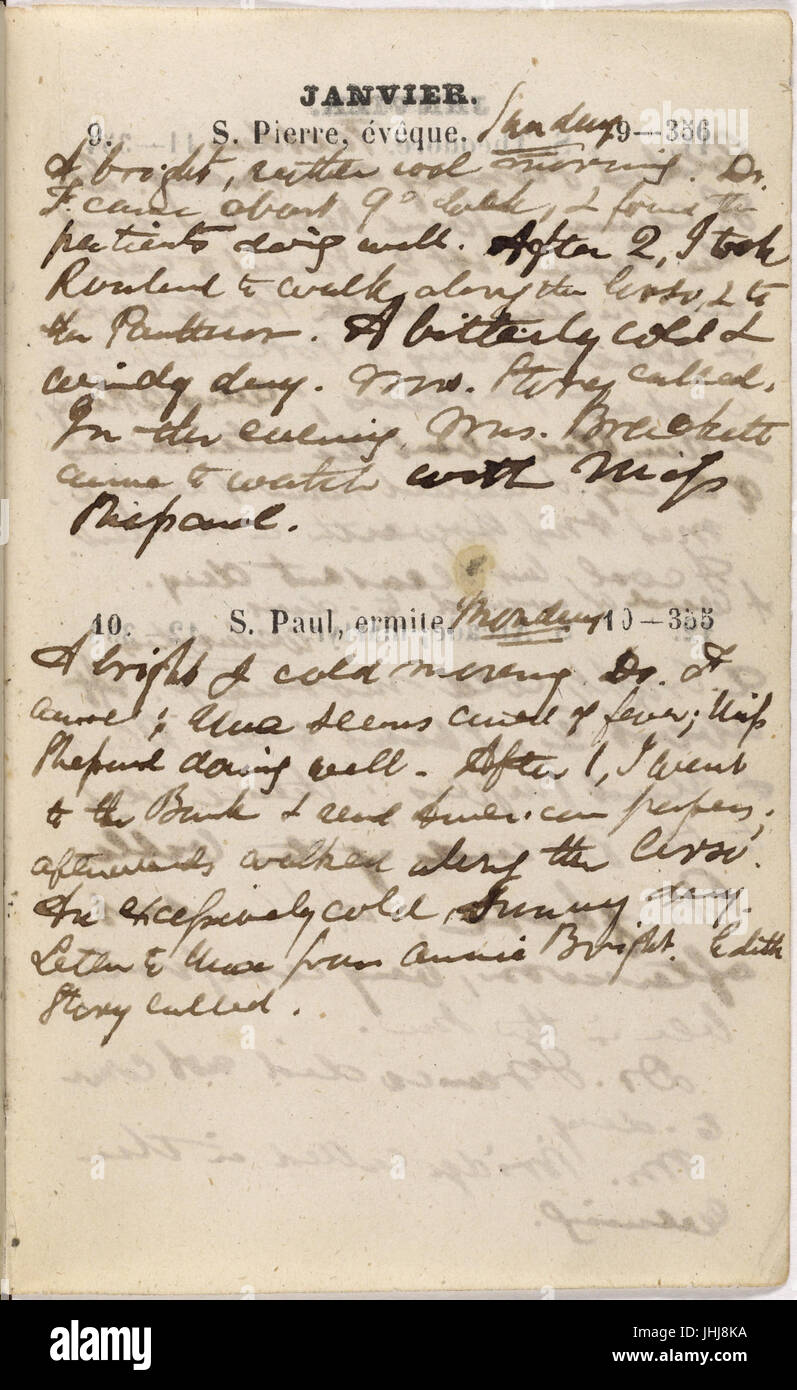 JANVIER.
9. S. Pierre, évêque. Sunday 9—356
A bright, rather cool morning. Dr.
F. came about 9 o'clock, & found the
patients doing well. After 2, I took
Rosebud to walk along the Corso, & to
the Pantheon. A bitterly cold &
windy day. Mrs. Story called.
In the evening, Mrs. Brackett
came to watch with Miss
Shepard.
10. S. Paul, ermite. Monday 10—355
A bright & cold morning. Dr. F
came; Una seems cured of fever; Miss
Shepard doing well. After 1, I went
to the Bank & read American papers;
afterwards walked along the Corso.
An excessively cold, sunny day.
Letter to Una from Annie Bright. Edith
Story called.
alamy
a
alamy stock photo
JHJ8KA
www.alamy.com